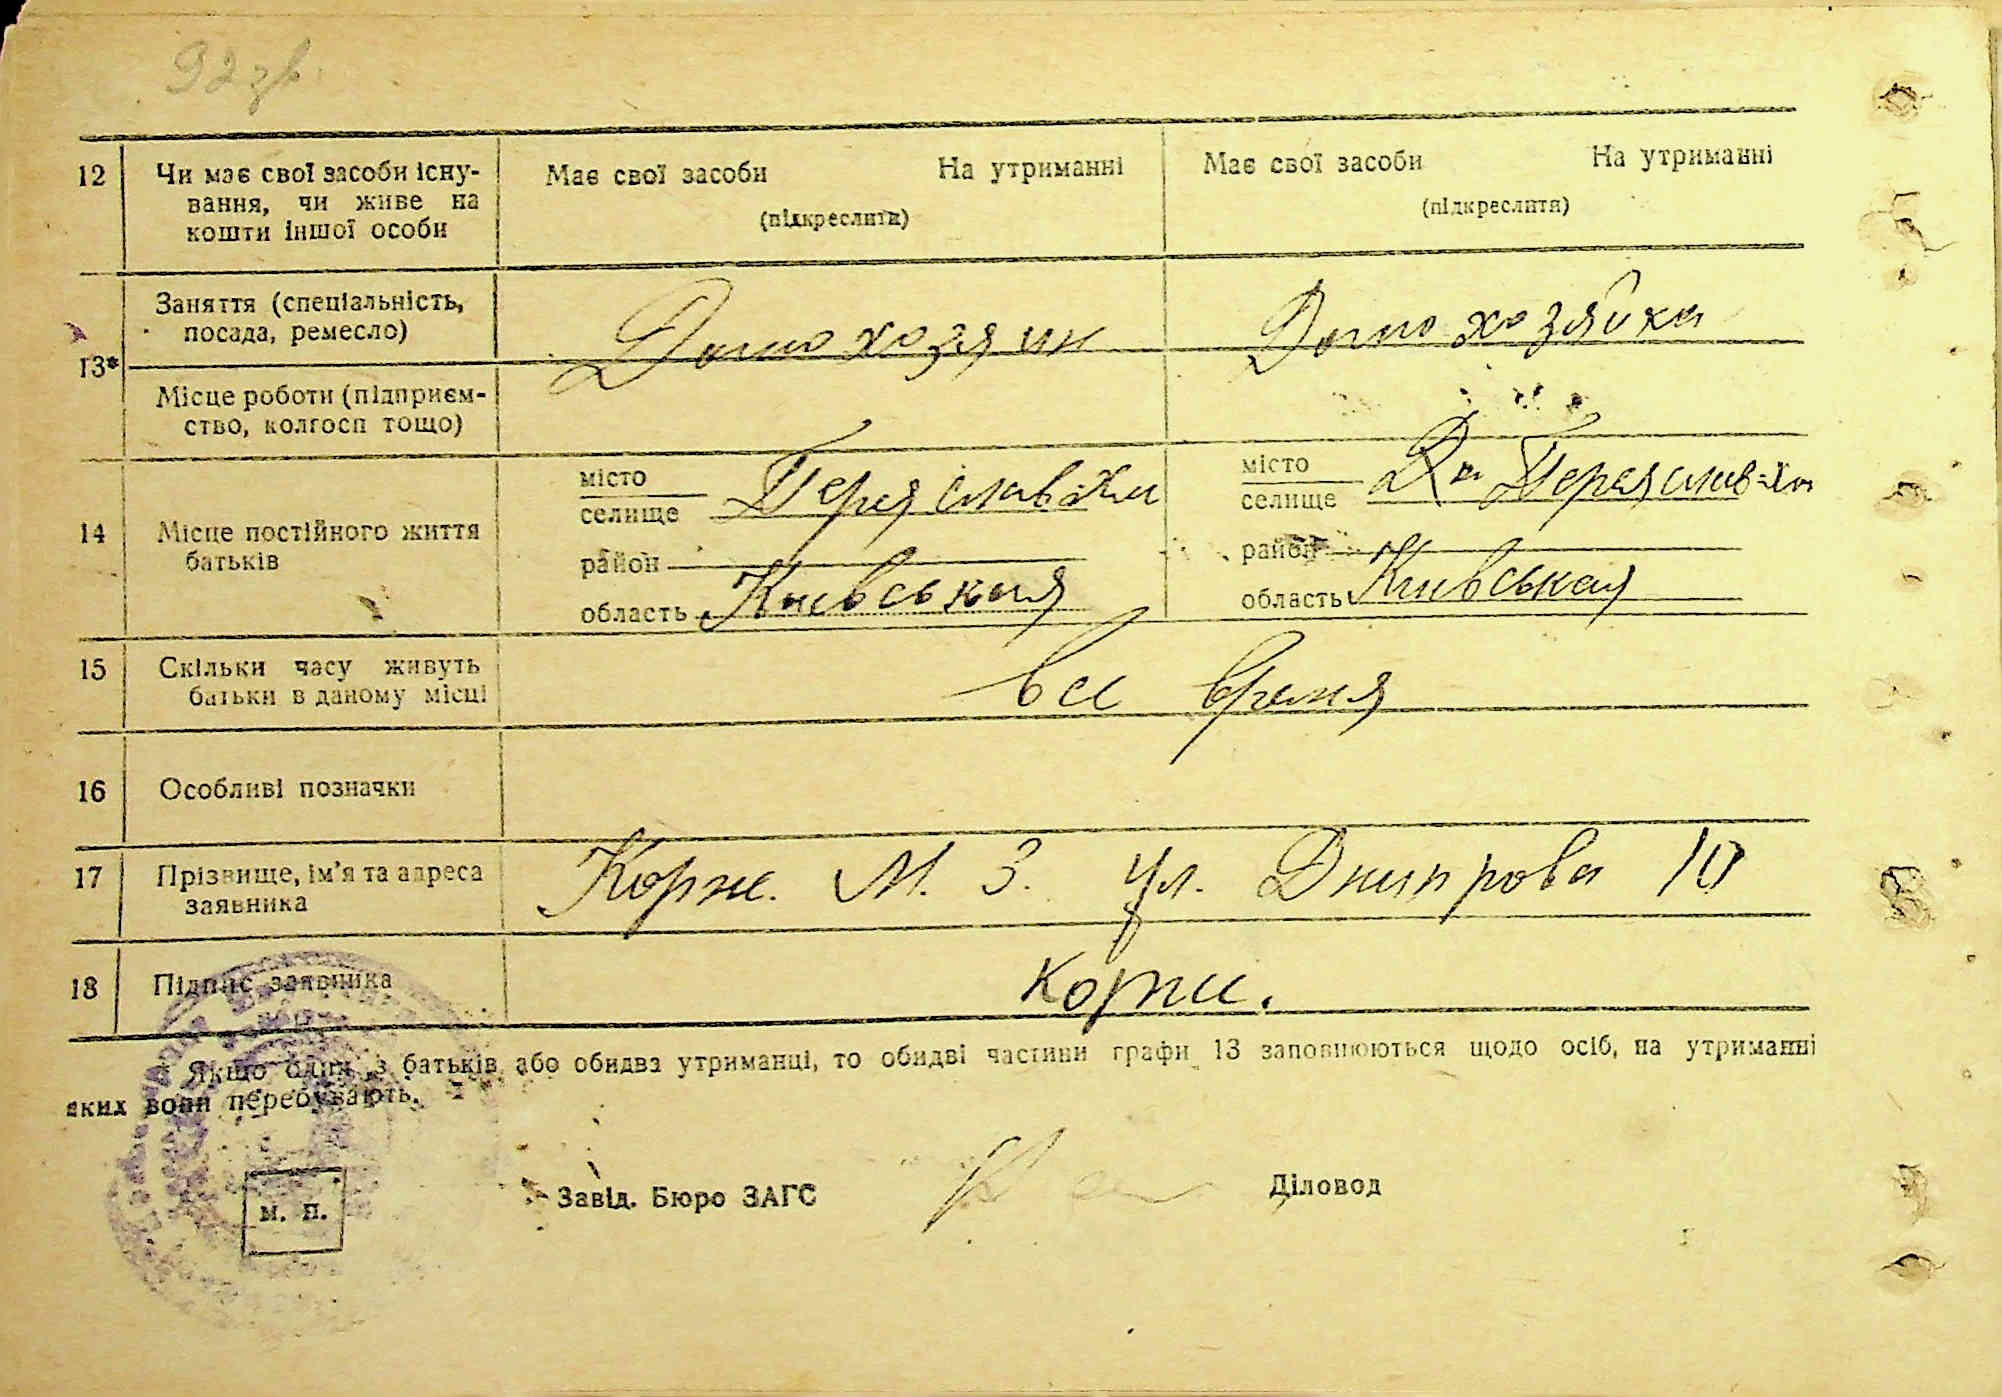 92 зв.
12 Чи має свої засоби існу-
вання, чи живе на
кошти іншої особи
Має свої засоби На утриманні
(підкреслити)
Має свої засоби На утриманні
(підкреслити)
13*
Заняття (спеціальність,
посада, ремесло)
Домохозяин
Домохозяйка
Місце роботи (підприєм-
ство, колгосп тощо)
14 Місце постійного життя
батьків
місто
селище
Переяслав-Хм
район
область Киевськая
місто
селище
Переяслав-Хм
район
область Киевськая
15 Скільки часу живуть
батьки в даному місці
все время
16 Особливі позначки
17 Прізвище, ім'я та адреса
заявника
Корж. М. З. ул. Днипрова 10
18 Підпис заявника
Корж.
* Якщо один з батьків або обидва утриманці, то обидві частини графи 13 заповнюються щодо осіб, на утриманні
яких вони перебувають.
м. п.
Завід. Бюро ЗАГС
Діловод